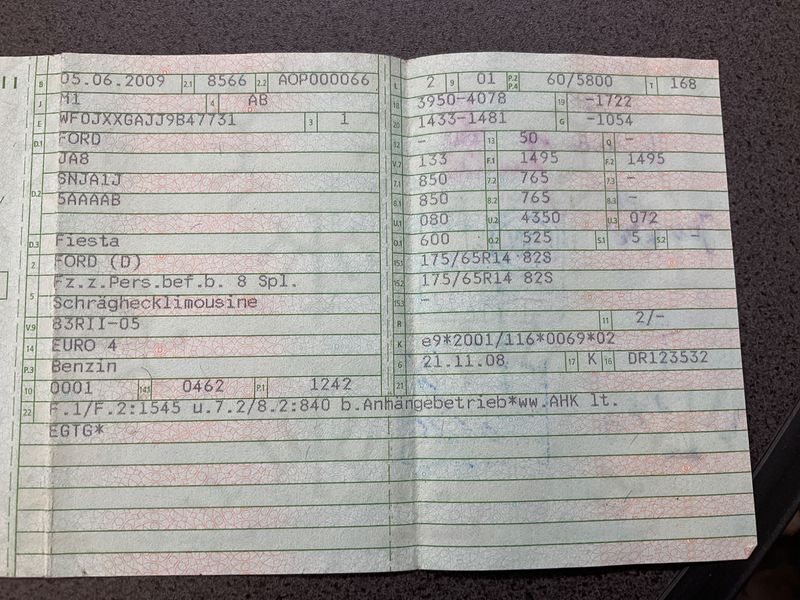 II
B 05.06.2009 2.1 8566 2.2 AOP000066
J M1 4 AB
E WF0JXXGAJJ9B47731 3 1
D.1 FORD
JA8
D.2 SNJA1J
5AAAAB
D.3 Fiesta
2 FORD (D)
5 Fz.z.Pers.bef.b. 8 Spl.
Schräghecklimousine
V.9 83RII-05
14 EURO 4
P.3 Benzin
10 0001 14.1 0462 P.1 1242
L 2 9 01 P.2 P.4 60/5800 T 168
18 3950-4078 19 -1722
20 1433-1481 G -1054
12 - 13 50 Q -
V.7 133 F.1 1495 F.2 1495
7.1 850 7.2 765 7.3 -
8.1 850 8.2 765 8.3 -
U.1 080 U.2 4350 U.3 072
O.1 600 O.2 525 S.1 5 S.2 -
15.1 175/65R14 82S
15.2 175/65R14 82S
15.3 -
R 11 2/-
K e9*2001/116*0069*02
6 21.11.08 17 K 16 DR123532
21
22 F.1/F.2:1545 u.7.2/8.2:840 b.Anhängebetrieb*ww.AHK lt.
EGTG*